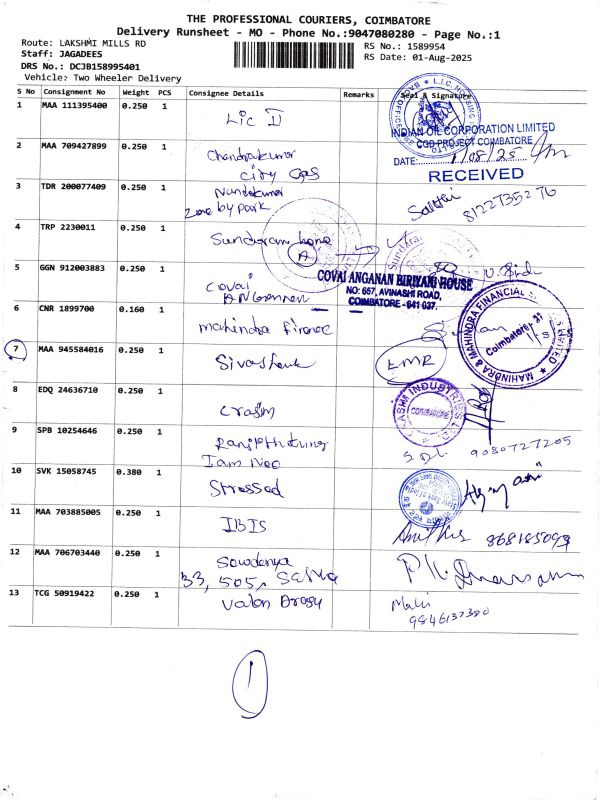 THE PROFESSIONAL COURIERS, COIMBATORE
Delivery Runsheet - MO - Phone No.:9047080280 - Page No.:1
Route: LAKSHMI MILLS RD
RS No.: 1589954
Staff: JAGADEES
RS Date: 01-Aug-2025
DRS No.: DCJB158995401
Vehicle: Two Wheeler Delivery
S No Consignment No Weight PCS Consignee Details Remarks Seal & Signature
1 MAA 111395400 0.250 1 Lic II
INDIAN OIL CORPORATION LIMITED
CGD PROJECT COIMBATORE
DATE: 1/08/25
RECEIVED
2 MAA 709427899 0.250 1 Chandrakumar
city Gas
3 TDR 200077409 0.250 1 Nandakumar
zone by park
8122735276
4 TRP 2230011 0.250 1 Sundaram home
A
5 GGN 912003883 0.250 1 Covai
COVAI ANGANAN BIRIYANI HOUSE
NO: 657, AVINASHI ROAD,
COIMBATORE - 641 037.
6 CNR 1899700 0.160 1 mahindra finance
MAHINDRA & MAHINDRA FINANCIAL LIMITED
Coimbatore
7 MAA 945584016 0.250 1
EMR
8 EDQ 24636710 0.250 1
INDUSTRIES
COIMBATORE
9 SPB 10254646 0.250 1
Iam Neo
9080727205
10 SVK 15058745 0.380 1 Stressed
11 MAA 703885005 0.250 1 IBIS
12 MAA 706703440 0.250 1 Sowdanya
33, 505,
13 TCG 50919422 0.250 1
9846137380
1